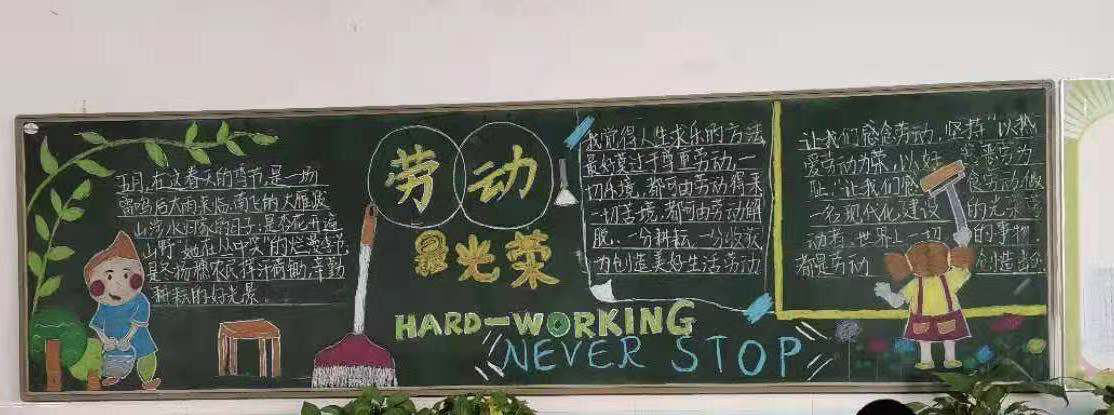 五月,在这春天的季节,是一场
雷鸣后大雨来临,南飞的大雁跋
山涉水归家的日子;是杏花开遍
山野,她在丛中笑的烂漫季节,
真冬杨穗农民挥汗
耕耘的好光景.
劳动
最光荣
HARD-WORKING
NEVER STOP
我觉得人生求乐的方法,
最好莫过于尊重劳动,一
切乐境,都可由劳动得来,
一切苦境,都可由劳动解
脱.一分耕耘,一分收获,
为创造美好生活劳动
让我们 劳动,坚持"以热
爱劳动为荣,以好 恶劳为
耻"让我们 劳动做
一名现代化建设 的光荣
动者.世界上一切 的事物,
都是劳动 创造